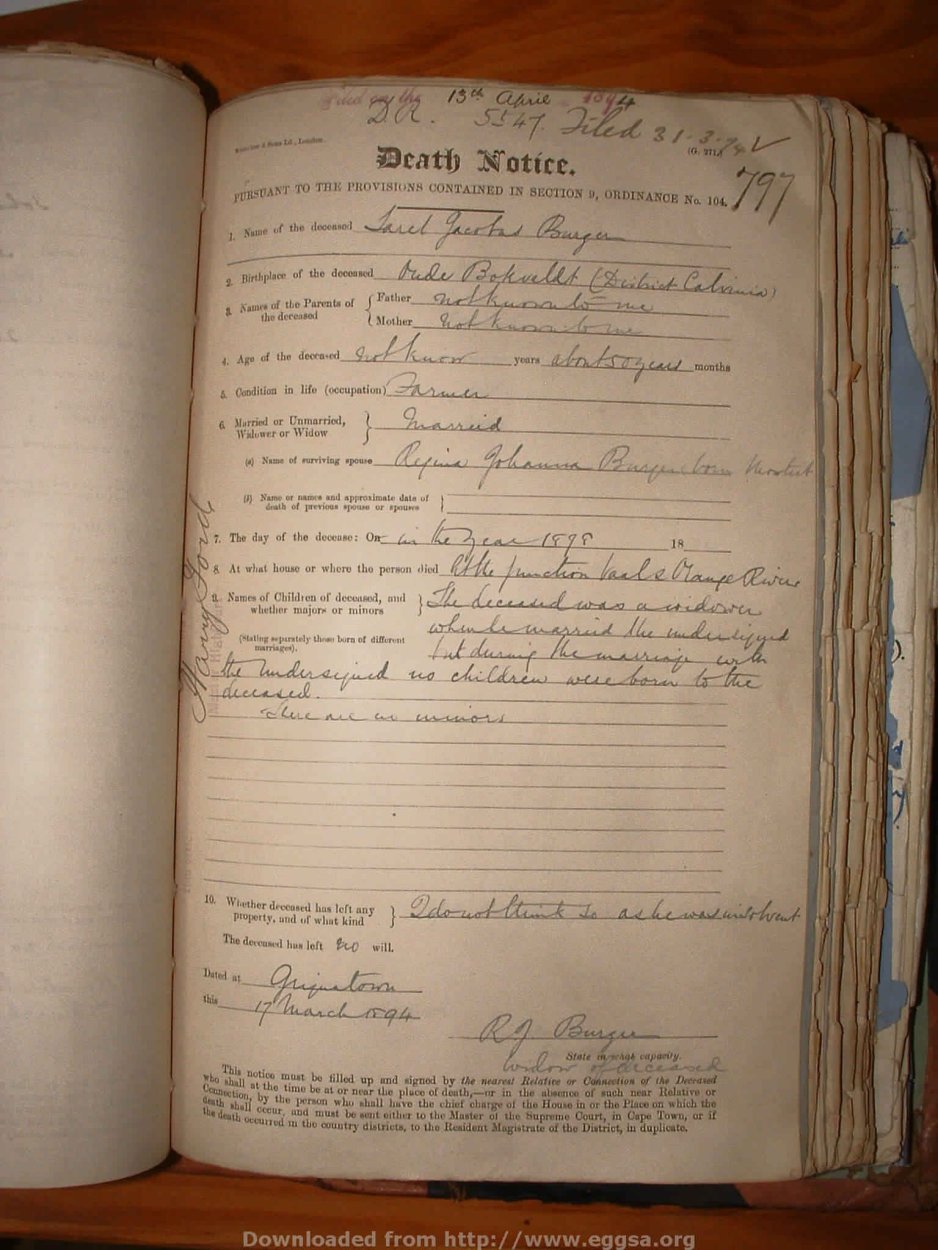 Filed on the 13th April 1894
D.R. 5547. Filed 31-3-94
Waterlow & Sons Ld., London.
(G. 271.)
Death Notice.
797
PURSUANT TO THE PROVISIONS CONTAINED IN SECTION 9, ORDINANCE No. 104.
1. Name of the deceased Sarel Jacobus Burger
2. Birthplace of the deceased Oude Bokveldt (District Calvinia)
3. Names of the Parents of the deceased
Father not known to me
Mother not known to me
4. Age of the deceased not know years about 50 years months
5. Condition in life (occupation) Farmer
6. Married or Unmarried, Widower or Widow
Married
(a) Name of surviving spouse Regina Johanna Burger born Mostert
(b) Name or names and approximate date of death of previous spouse or spouses
7. The day of the decease: On in the year 18 18
8. At what house or where the person died At the junction Vaal & Orange River
9. Names of Children of deceased, and whether majors or minors
(Stating separately those born of different marriages).
The deceased was a widower
when he married the undersigned
but during the marriage with
the undersigned no children were born to the
deceased.
There are no minors
10. Whether deceased has left any property, and of what kind
I do not think so as he was insolvent
The deceased has left no will.
Dated at Griquatown
this 17 March 1894
R J Burger
State in what capacity.
Widow of deceased
This notice must be filled up and signed by the nearest Relative or Connection of the Deceased
who shall at the time be at or near the place of death,—or in the absence of such near Relative or
Connection, by the person who shall have the chief charge of the House in or the Place on which the
death shall occur, and must be sent either to the Master of the Supreme Court, in Cape Town, or if
the death occurred in the country districts, to the Resident Magistrate of the District, in duplicate.
Downloaded from http://www.eggsa.org